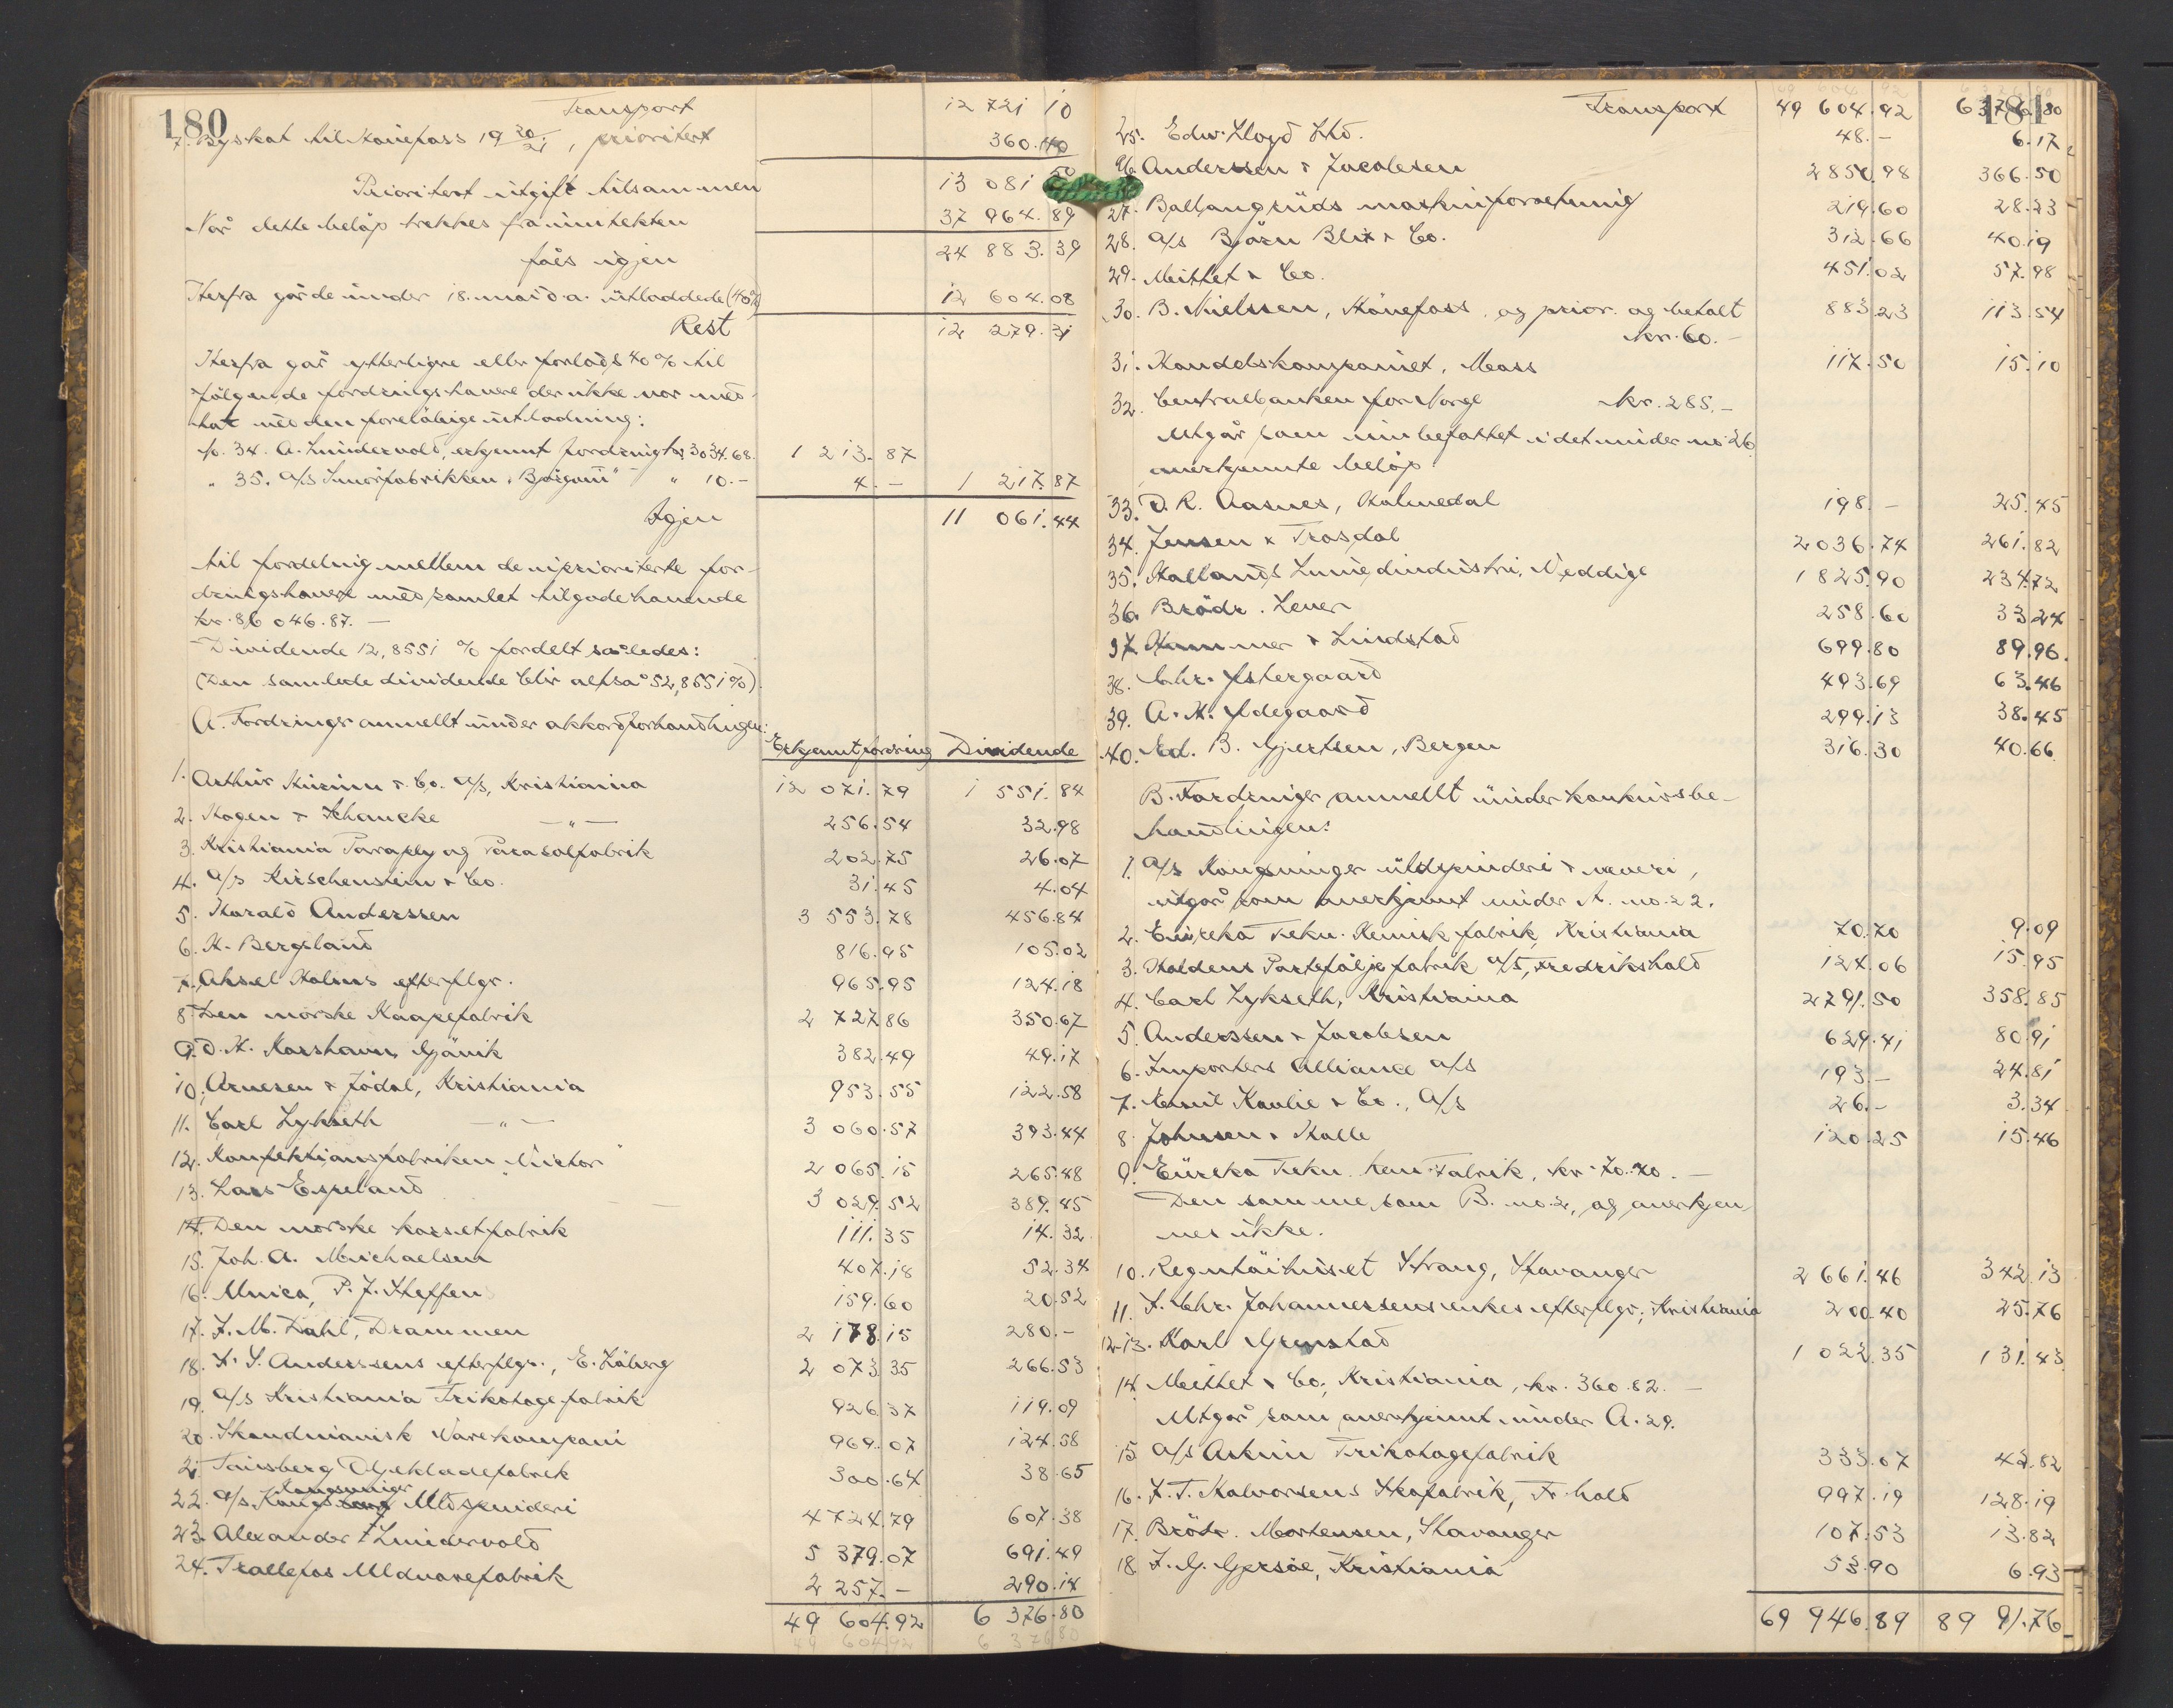 180
Transport 12 721 10
7. Byskat til Hönefoss 19 20/21, prioritert 360.40
Prioritert utgift tilsammen 13 081 50
Når dette beløp trekkes fra inntekten 37 964.89
fåes igjen 24 883.39
Herfra går de under 18. mai d.a. utloddede (40%) 12 604.08
Rest 12 279.31
Herfra går ytterligere eller forlods 40% til
følgende fordringshavere der ikke var med-
tat ved den foreløbige utlodning:
No. 34. A. Lundervold, erkjennt fordring kr. 3034.68. 1 213.87
" 35. A/S Smörfabrikken " " 10.- 4.- 1 217.87
Igjen 11 061.44
til fordeling mellem de uprioriterte for-
dringshavere med samlet tilgodehavende
kr. 86 046.87.-
Dividende 12,8551 % fordelt således:
(Den samlede dividende blir altså 52,8551%).
A. Fordringer anmeldt under akkordforhandlingen:
Erkjennt fordring Dividende
1. Arthur & Co. A/S, Kristiania 12 071.79 1 551.84
2. Hagen & Schancke -"- 256.54 32.98
3. Kristiania Paraply og Parasolfabrik 202.75 26.07
4. A/S Hirschenstein & Co. 31.45 4.04
5. Harald Anderssen 3 553.78 456.84
6. H. Bergsland 816.95 105.02
7. Aksel Holms efterflgr. 965.95 124.18
8. Den norske Kaapefabrik 2 727.86 350.67
9. O. H. Karshavn, Gjövik 382.49 49.17
10. Arnesen & Jödal, Kristiania 953.55 122.58
11. Carl Lykseth -"- 3 060.57 393.44
12. Konfektionsfabriken Victor " 2 065.15 265.48
13. Lars Espeland 3 029.52 389.45
14. Den norske korsetfabrik 111.35 14.32
15. Joh. A. Michaelsen 407.18 52.34
16. Unica, P. J. Steffen 159.60 20.52
17. J. M. Dahl, Drammen 2 178.15 280.-
18. F. S. Anderssens efterflgr., E. Höberg 2 073.35 266.53
19. A/S Kristiania Trikotagefabrik 926.37 119.09
20. Skandinavisk Varekompani 969.07 124.58
21. Tønsberg Oljeklædefabrik 300.64 38.65
22. A/S Kongsvinger Uldspinderi 4 724.79 607.38
23. Alexander Lundervold 5 379.07 691.49
24. Trællefos Uldvarefabrik 2 257.- 290.14
49 604.92 6 376.80
181
Transport 49 604.92 6 376.80
25. Edw. Lloyd Ltd. 48.- 6.17
26. Anderssen & Jacobsen 2850.98 366.50
27. Ballangruds maskinforretning 219.60 28.23
28. A/S Björn Blix & Co. 312.66 40.19
29. Mittet & Co. 451.02 57.98
30. B. Nielssen, Hönefoss, og prior. og betalt 883.23 113.54
kr. 60.-
31. Handelskompaniet, Moss 117.50 15.10
32. Centralbanken for Norge kr. 285.-
Utgår som innbefattet i det under no. 26
anerkjennte beløp.
33. O. R. Aasnes, Holmedal 198.- 25.45
34. Jensen & Trosdal 2036.74 261.82
35. Hallands Linneindustri, Veddige 1 825.90 234.72
36. Brödr. Lever 258.60 33.24
37. Hammer & Lindstad 699.80 89.96
38. Chr. Østergaard 493.69 63.46
39. A. H. Ødegaard 299.13 38.45
40. Ed. B. Gjertsen, Bergen 316.30 40.66
B. Fordringer anmeldt under konkursbe-
handlingen:
1. A/S Kongsvinger uldspinderi & veveri,
utgår som anerkjennt under A. no. 22.
2. Eureka Tekn. Kemisk fabrik, Kristiania 70.70 9.09
3. Haldens Portefølje fabrik A/S, Fredrikshald 124.06 15.95
4. Carl Lykseth, Kristiania 2791.50 358.85
5. Anderssen & Jacobsen 629.41 80.91
6. Importers Alliance A/S 193.- 24.81
7. Emil Kavlie & Co., A/S 26.- 3.34
8. Johnsen & Halle 120.25 15.46
9. Eureka Tekn. kem. Fabrik, kr. 70.70.-
Den samme som B. no. 2, og anerkjen-
nes ikke.
10. Strang, Stavanger 2 661.46 342.13
11. F. Chr. Johannessens enkes efterflgr., Kristiania 200.40 25.76
12-13. Karl Grinstad 1 022.35 131.43
14. Mittet & Co., Kristiania, kr. 360.82.-
Utgår som anerkjennt under A. 29.
15. A/S Askim Trikotagefabrik 333.07 42.82
16. H. T. Halvorsens Skofabrik, Fr.hald 997.19 128.19
17. Brödr. Mortensen, Stavanger 107.53 13.82
18. J. G. Gjersöe, Kristiania 53.90 6.93
69 946.89 89 91.76